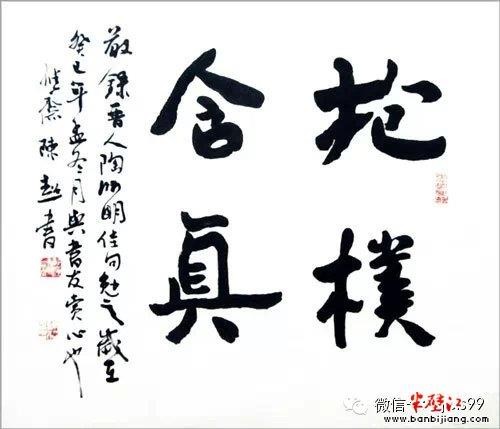 抱樸
含眞
敬錄晉人陶淵明佳句勉之歲在
癸巳年孟冬月與書友賞心也
齋陳超書
微信
s99
半壁江
www.banbijiang.com